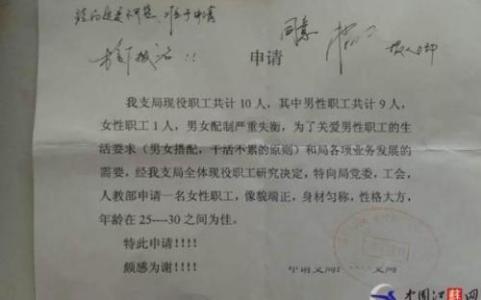 同意
申请
我支局现役职工共计 10 人，其中男性职工共计 9 人，
女性职工 1 人，男女配制严重失衡，为了关爱男性职工的生
活要求（男女搭配，干活不累的原则）和局各项业务发展的
需要，经我支局全体现役职工研究决定，特向局党委，工会，
人教部申请一名女性职工，像貌端正，身材匀称，性格大方，
年龄在 25----30 之间为佳。
特此申请！！！！
颇感为谢！！！！
中国江苏网